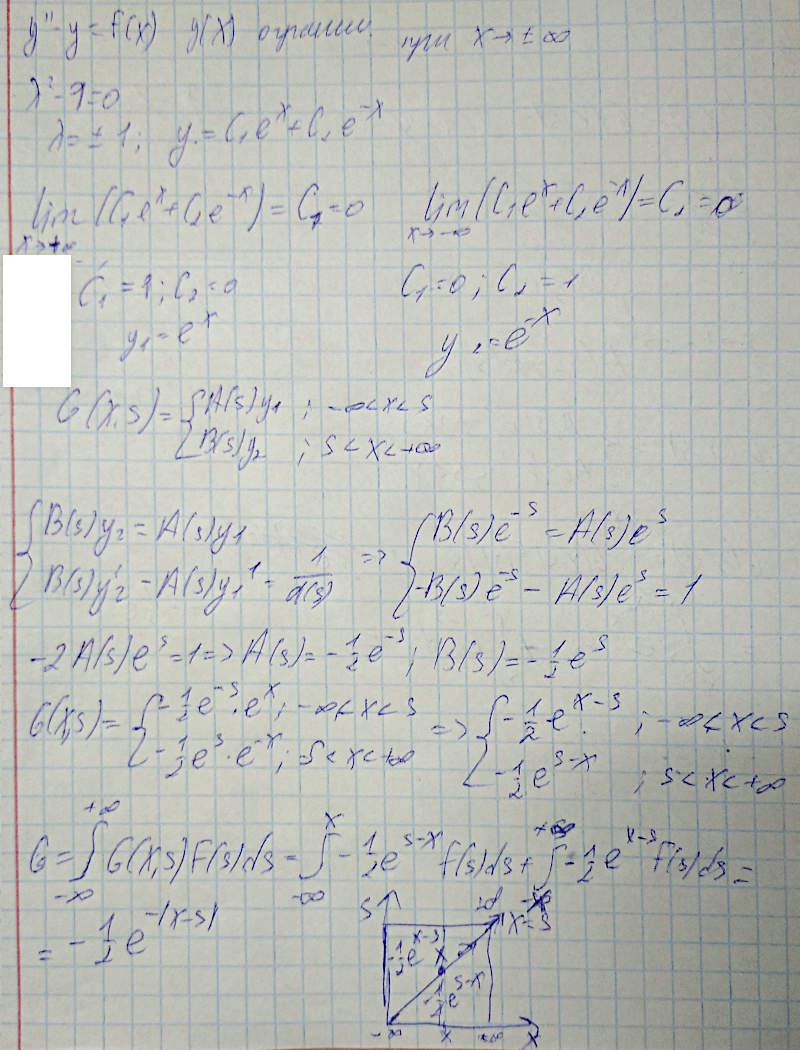 y'' - y = f(x)   y(x) огранич. при x → ±∞
λ² - 1 = 0
λ = ±1;   y = C₁eˣ + C₂e⁻ˣ
lim (C₁eˣ + C₂e⁻ˣ) = C₁ = 0   lim (C₁eˣ + C₂e⁻ˣ) = C₂ = 0
x→+∞   x→-∞
C₁ = 1; C₂ = 0   C₁ = 0; C₂ = 1
y₁ = eˣ   y₂ = e⁻ˣ
G(x,s) = { A(s)y₁ ; -∞<x<s
B(s)y₂ ; s<x<+∞
{ B(s)y₂ = A(s)y₁   => { B(s)e⁻ˢ = A(s)eˢ
B(s)y₂' - A(s)y₁' = 1/a(s)   -B(s)e⁻ˢ - A(s)eˢ = 1
-2A(s)eˢ = 1 => A(s) = -1/2 e⁻ˢ; B(s) = -1/2 eˢ
G(x,s) = { -1/2 e⁻ˢ·eˣ; -∞<x<s   => { -1/2 e^(x-s) ; -∞<x<s
-1/2 eˢ·e⁻ˣ; s<x<+∞   -1/2 e^(s-x) ; s<x<+∞
G = ∫_{-∞}^{+∞} G(x,s)f(s)ds = ∫_{-∞}^{x} -1/2 e^(s-x) f(s)ds + ∫_{x}^{+∞} -1/2 e^(x-s) f(s)ds =
= -1/2 e^(-|x-s|)
s   x=s
-1/2 e^(x-s)   x
-1/2 e^(s-x)
-∞   x   +∞   x